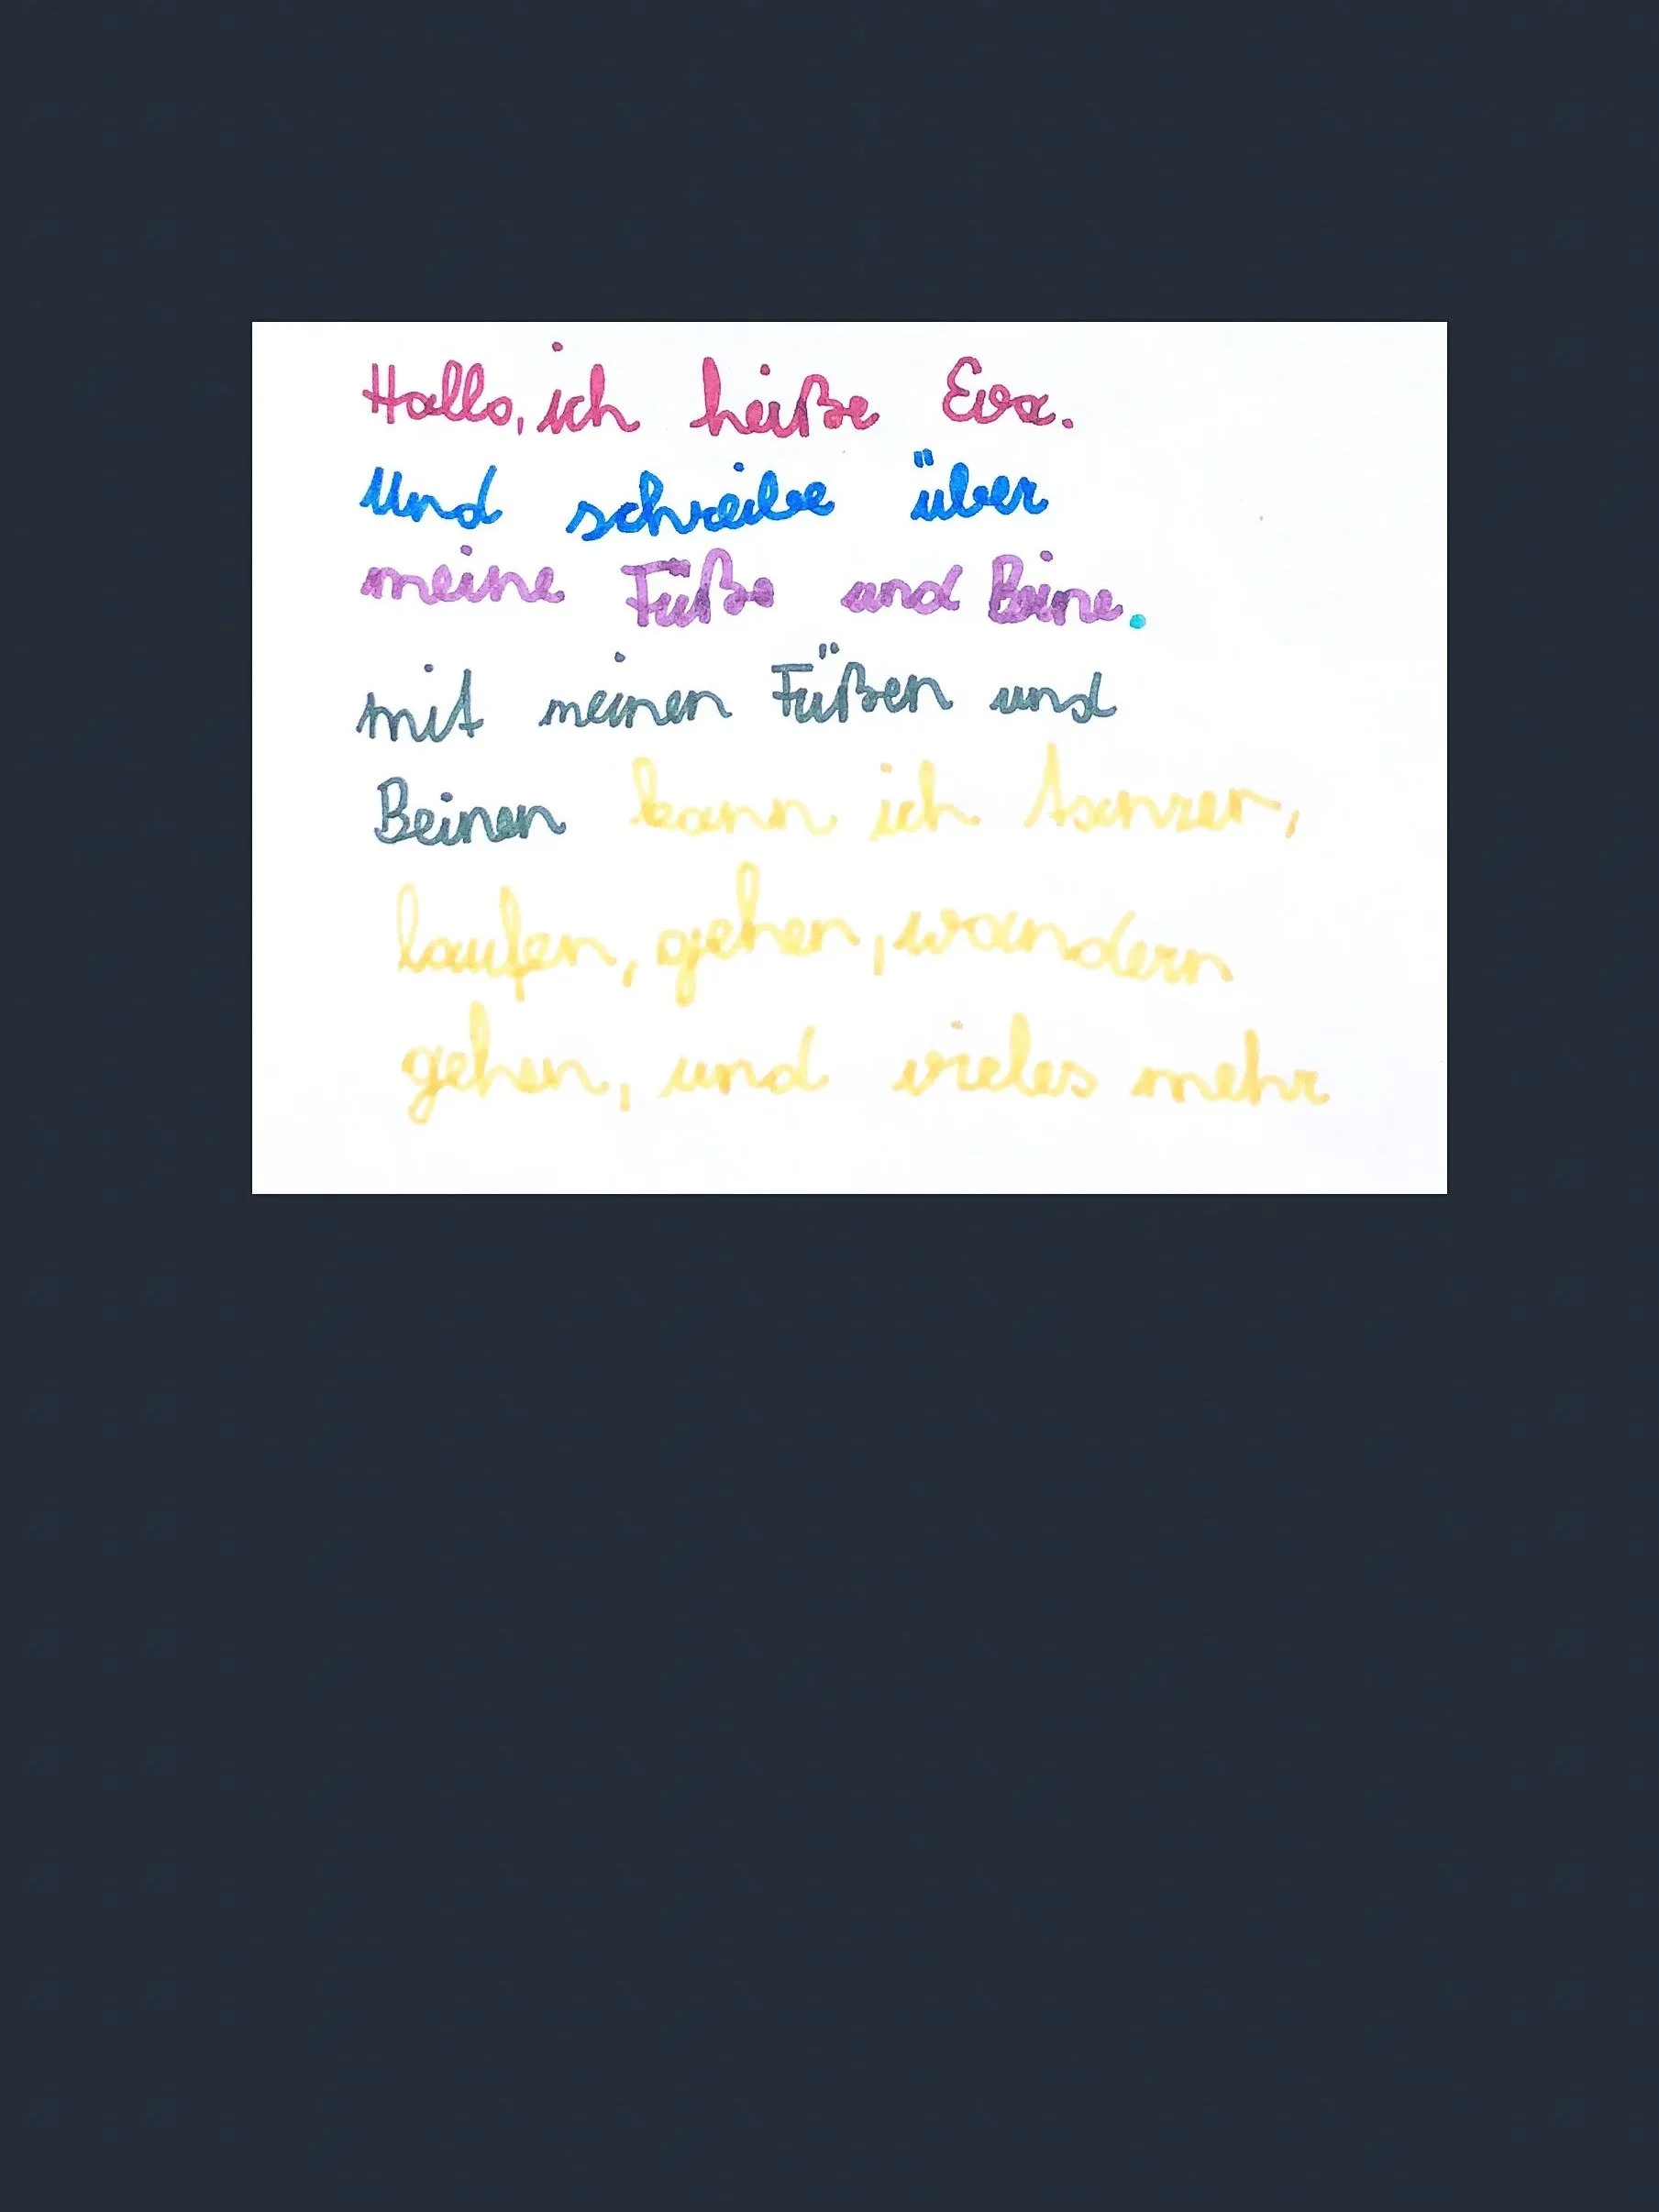 Hallo, ich heiße Eva.
Und schreibe über
meine Fuße und Beine.
mit meinen Füßen und
Beinen kann ich tanzen,
laufen, gehen, wandern
gehen, und vieles mehr